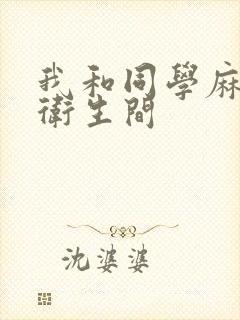 我和同學麻
衛生間
沈婆婆